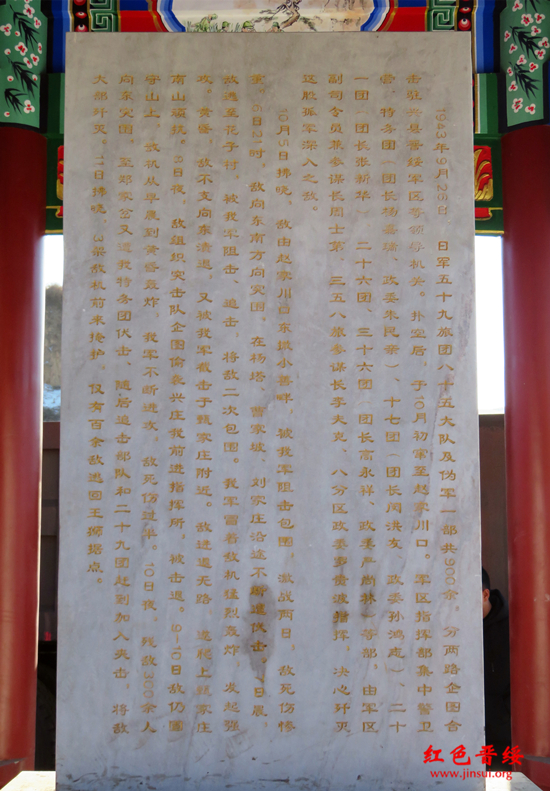 1943年9月26日，日军五十九旅团八十五大队及伪军一部共900余，分两路企图合
击驻兴县晋绥军区等领导机关。扑空后，于10月初窜至赵家川口。军区指挥部集中警卫
营、特务团（团长杨嘉瑞、政委朱民亲）、十七团（团长阎洪友、政委孙鸿志）、二十
一团（团长张新华）、二十六团、三十六团（团长高永祥、政委严尚林）等部，由军区
副司令员兼参谋长周士第、三五八旅参谋长李夫克、八分区政委罗贵波指挥，决心歼灭
这股孤军深入之敌。
10月5日拂晓，敌由赵家川口东披小善畔，被我军阻击包围，激战两日，敌死伤惨
重。6日21时，敌向东南方向突围，在杨塔、曹家坡、刘家庄沿途不断遭伏击。7日晨，
敌逃至花子村，被我军阻击、追击，将敌二次包围。我军冒着敌机猛烈轰炸，发起强
攻。黄昏，敌不支向东溃退，又被我军截击于甄家庄附近。敌进退无路，遂爬上甄家庄
南山顽抗。8日夜，敌组织突击队企图偷袭兴庄我前进指挥所，被击退。9-10日敌仍固
守山上，敌机从早晨到黄昏轰炸，我军不断进攻，敌死伤过半。10日夜，残敌300余人
向东突围，至郑家岔又遭我特务团伏击，随后追击部队和二十九团赶到加入夹击，将敌
大部歼灭。11日拂晓，3架敌机前来掩护，仅有百余敌逃回王狮据点。
红色晋绥
www.jinsui.org